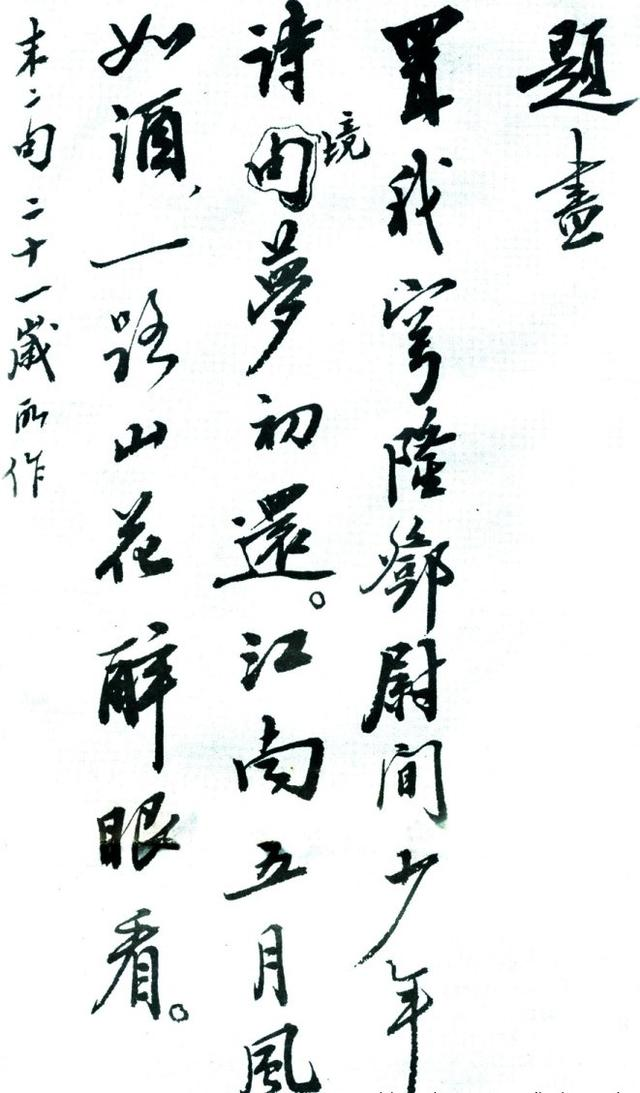 題畫
置我穹隆鄧尉間少年
詩句境夢初還。江南五月風
如酒，一路山花醉眼看。
末二句二十一歲所作